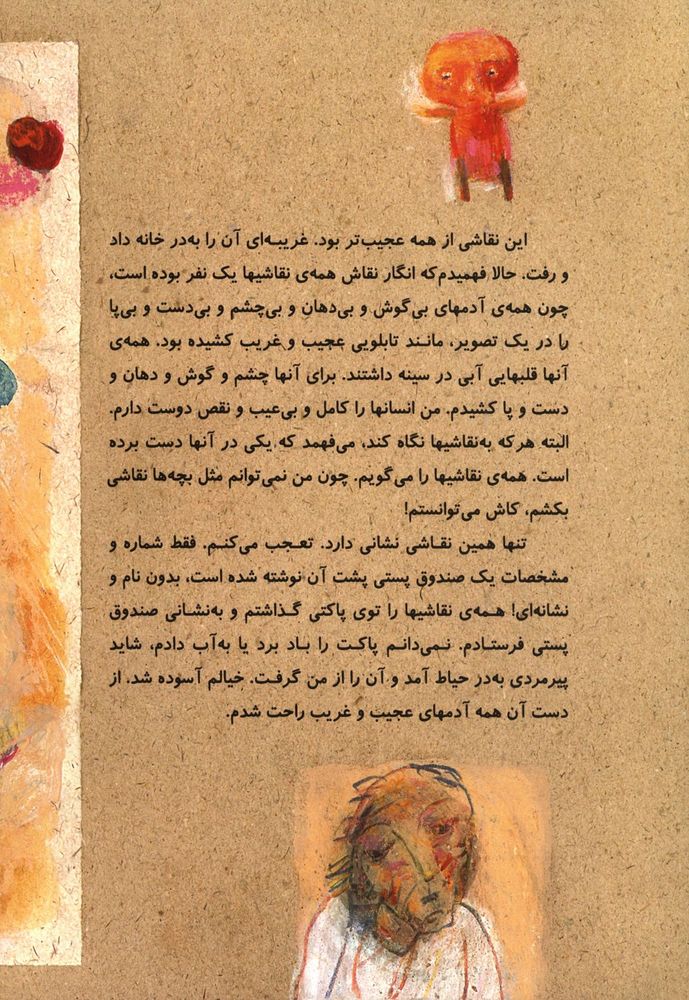 این نقاشی از همه عجیب‌تر بود. غریبه‌ای آن را به‌در خانه داد
و رفت. حالا فهمیدم‌که انگار نقاش همه‌ی نقاشیها یک نفر بوده است،
چون همه‌ی آدمهای بی‌گوش و بی‌دهان و بی‌چشم و بی‌دست و بی‌پا
را در یک تصویر، مانند تابلویی عجیب و غریب کشیده بود. همه‌ی
آنها قلبهایی آبی در سینه داشتند. برای آنها چشم و گوش و دهان و
دست و پا کشیدم. من انسانها را کامل و بی‌عیب و نقص دوست دارم.
البته هرکه به‌نقاشیها نگاه کند، می‌فهمد که یکی در آنها دست برده
است. همه‌ی نقاشیها را می‌گویم. چون من نمی‌توانم مثل بچه‌ها نقاشی
بکشم، کاش می‌توانستم!
تنها همین نقاشی نشانی دارد. تعجب می‌کنم. فقط شماره و
مشخصات یک صندوق پستی پشت آن نوشته شده است، بدون نام و
نشانه‌ای! همه‌ی نقاشیها را توی پاکتی گذاشتم و به‌نشانی صندوق
پستی فرستادم. نمی‌دانم پاکت را باد برد یا به‌آب دادم، شاید
پیرمردی به‌در حیاط آمد و آن را از من گرفت. خیالم آسوده شد. از
دست آن همه آدمهای عجیب و غریب راحت شدم.